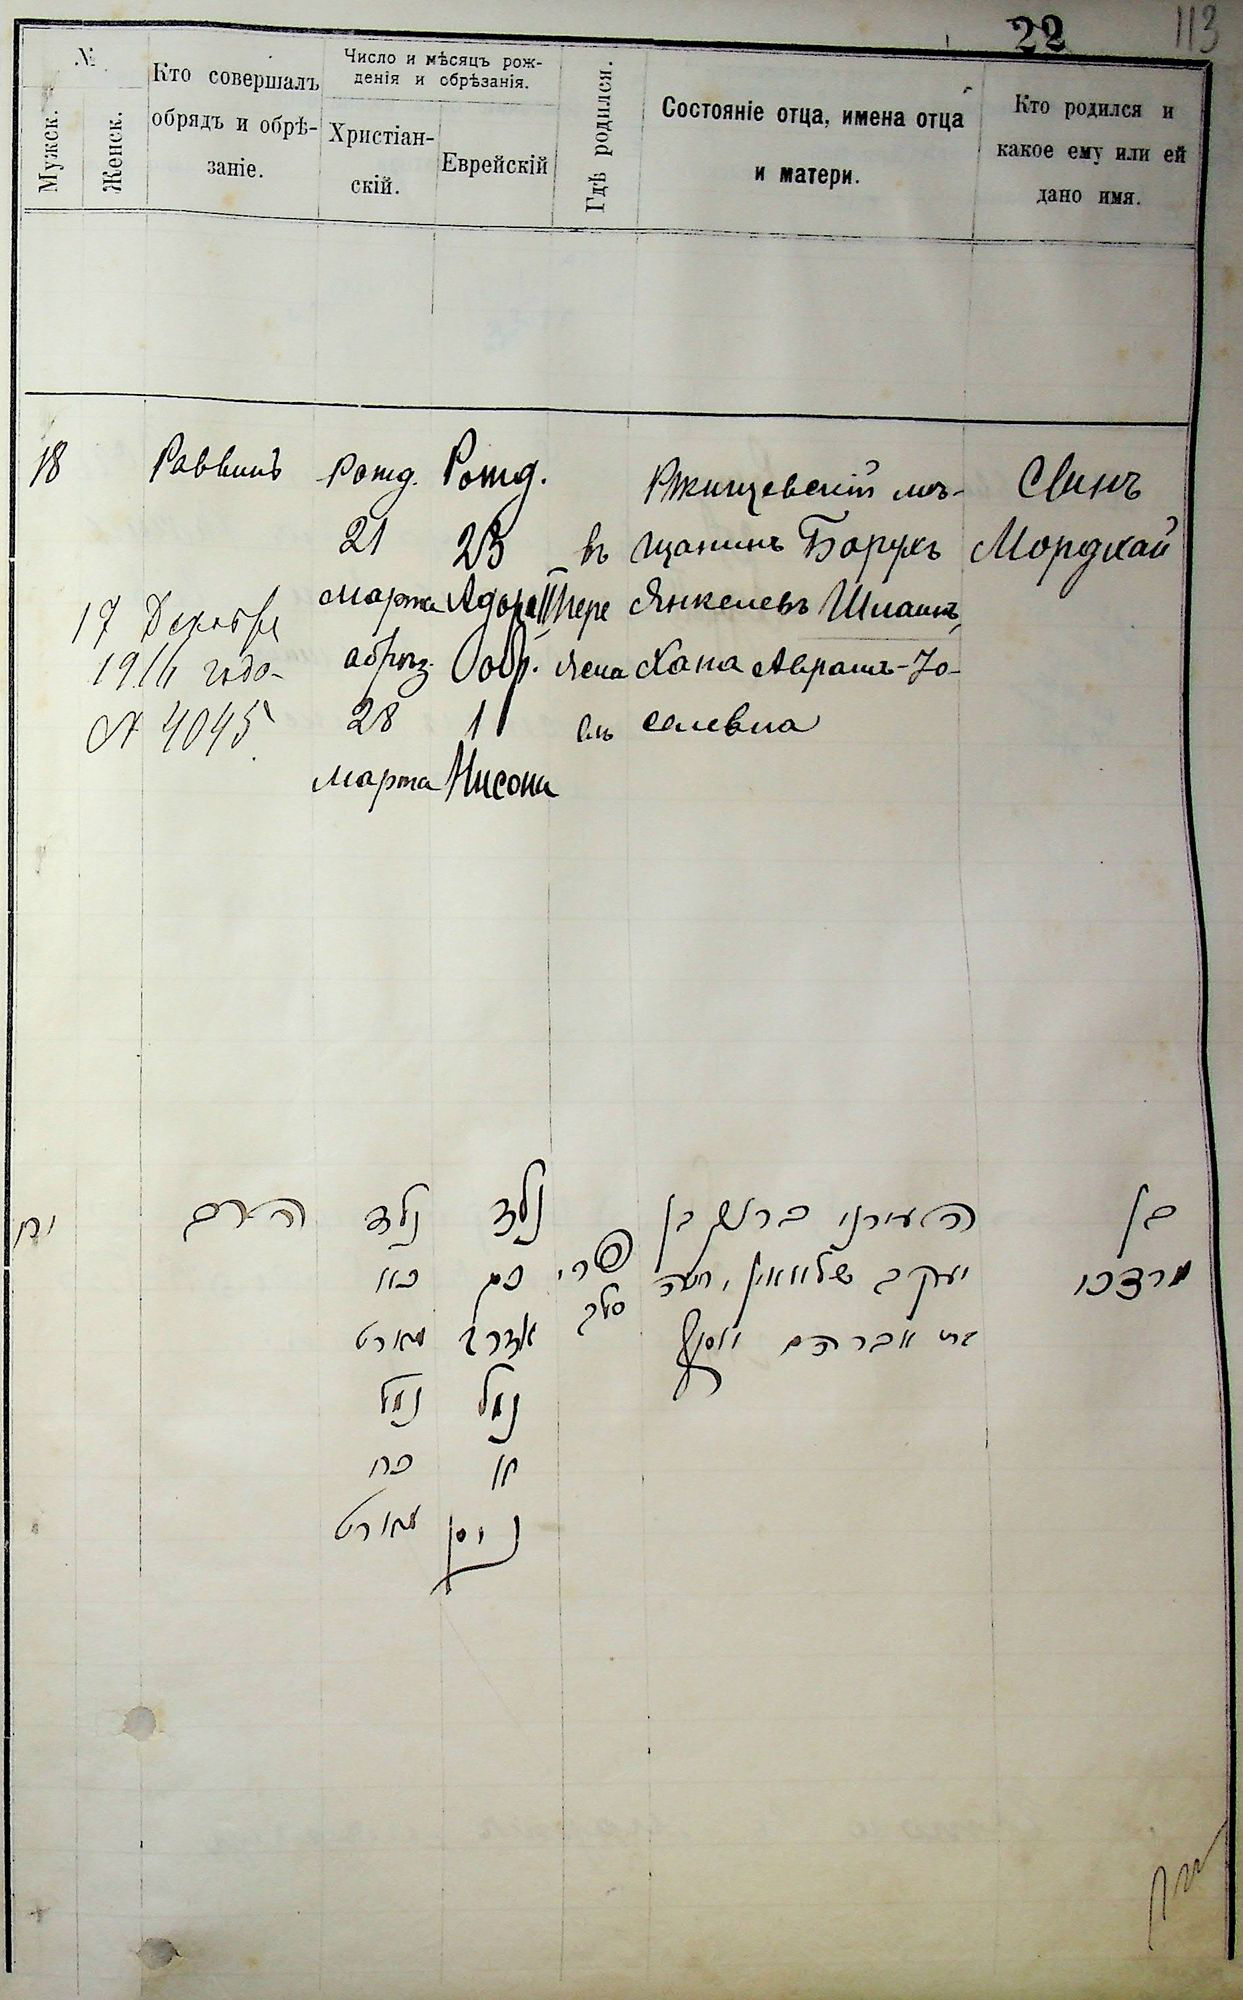 22
113
№
Мужск.
Женск.
Кто совершалъ
обрядъ и обрѣ-
заніе.
Число и мѣсяцъ рож-
денія и обрѣзанія.
Христіан-
скій.
Еврейскій
Гдѣ родился.
Состояніе отца, имена отца
и матери.
Кто родился и
какое ему или ей
дано имя.
18
Раввинъ
17 Декабря
1916 года
№ 4045
Рожд.
21
марта
обрѣз.
28
марта
Рожд.
23
Адора II
обр.
1
Нисона
въ
Пере
яслa
вль
Ржищевскій мѣ-
щанинъ Борухъ
Янкелевъ Шпаинъ,
жена Хана Аврамъ-Іо-
селевна
Сынъ
Мордхай
יח
הרב
נולד
כא
מארט
נמול
כח
מארט
נולד
כג
אדר ב
נמול
א
ניסן
פרי
סלב
העירני ברוך בן
יעקב
אברהם יוסף
בן
מרדכי